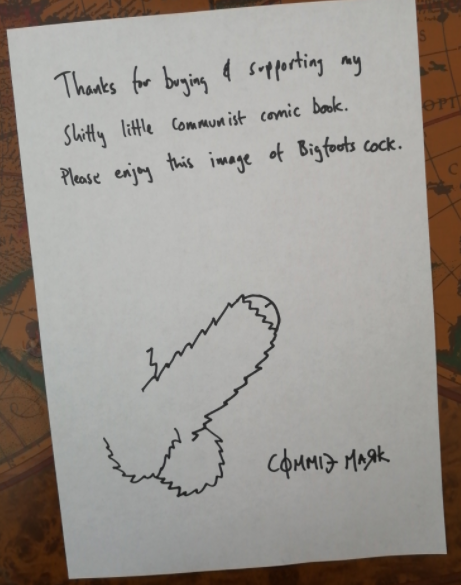 Thanks for buying & supporting my
shitty little communist comic book.
Please enjoy this image of Bigfoots cock.
CØMMIƎ MAЯK